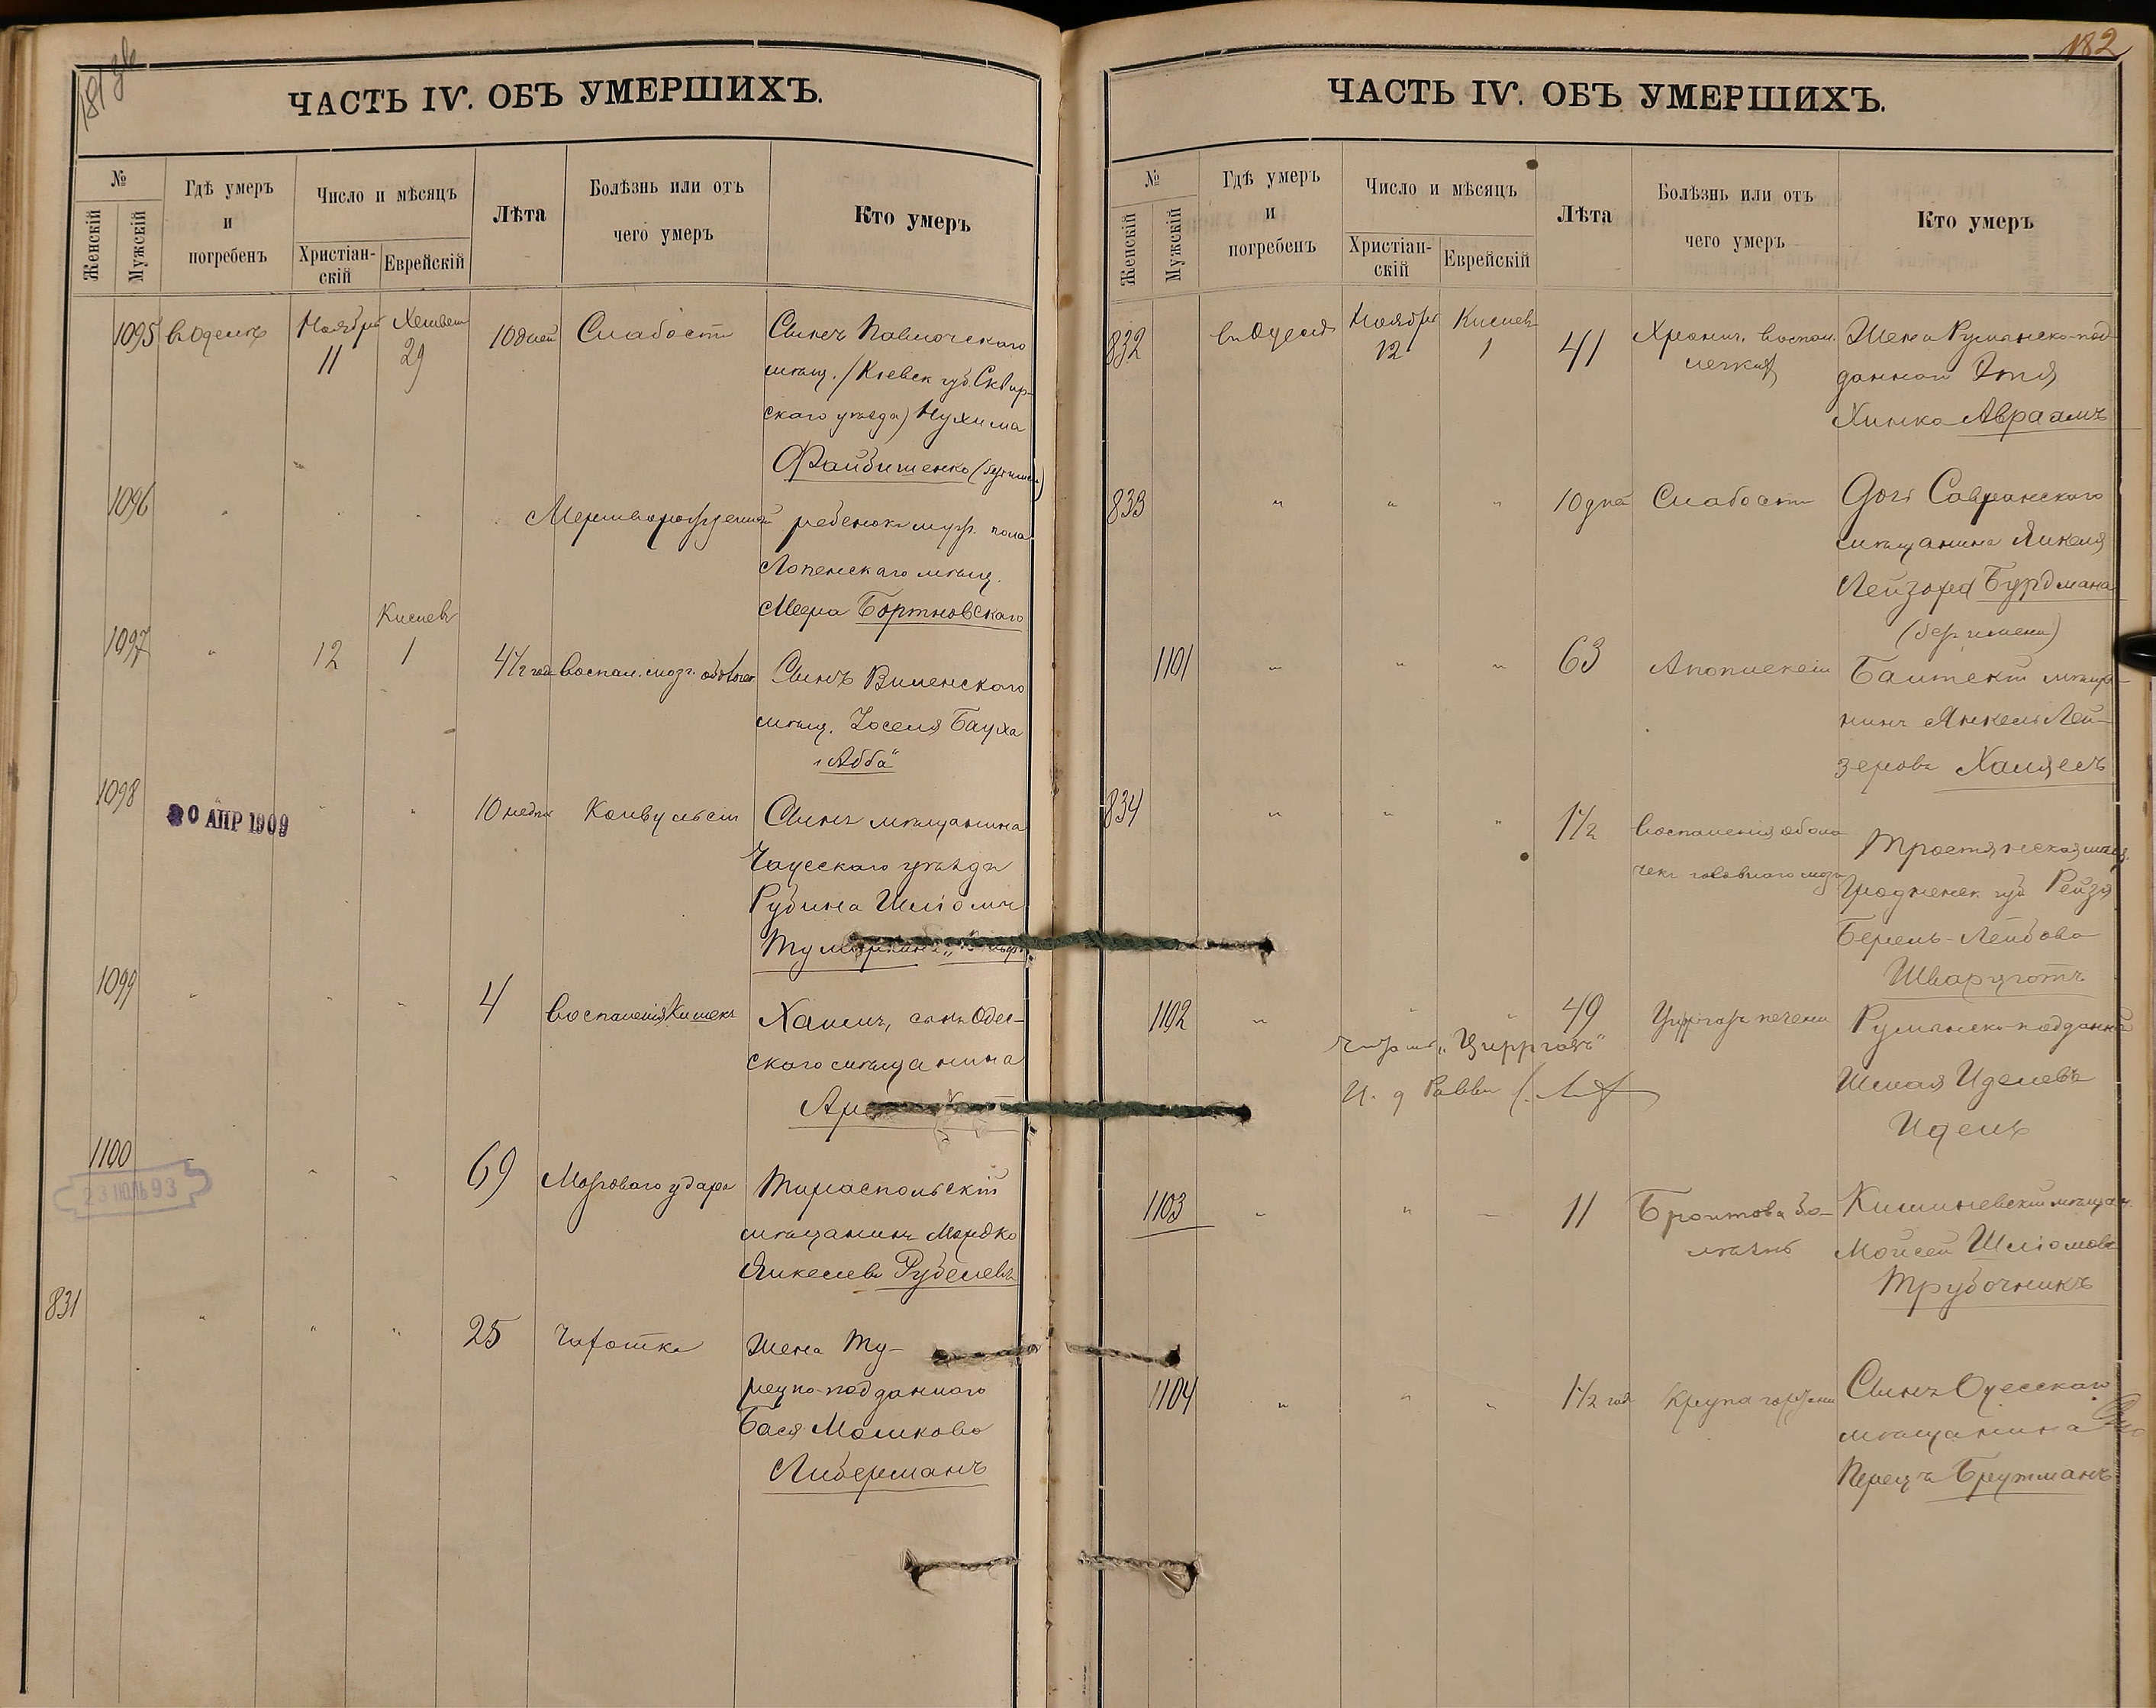 ЧАСТЬ IV. ОБЪ УМЕРШИХЪ.
№
Женскій
Мужскій
Гдѣ умеръ
и
погребенъ
Число и мѣсяцъ
Христіан-
скій
Еврейскій
Лѣта
Болѣзнь или отъ
чего умеръ
Кто умеръ
1095 въ Одессѣ Ноября 11 29 10 дней Слабость Сынъ Паволочскаго
мѣщ. (Кіевск. губ. Сквир-
скаго уѣзда) Нухима
Файбишенко (безъ имени)
1096 Мертворожденный ребенокъ муж. пола
мѣщ.
Меера Бортновскаго
Кислев
1097 " 12 1 4½ год Воспал. мозг. оболоч. Сынъ Виленскаго
мѣщ. Іоселя Бауха
"Абба"
1098 10 недѣль Конвульсіи Сынъ мѣщанина
Чаусскаго уѣзда
Рубина Шліомы
20 АПР 1909
1099 " " " 4 Воспаленія кишекъ Хаимъ, сынъ Одес-
скаго мѣщанина
1100 " " 69 Мозговаго удара Тираспольскій
мѣщанинъ Мордко
Янкелевъ Рубелевъ
23 ІЮЛЬ 93
831 " " " 25 Чахотка Жена Ту-
рецко-подданнаго
Бася Мошкова
Либерманъ
182
ЧАСТЬ IV. ОБЪ УМЕРШИХЪ.
№
Женскій
Мужскій
Гдѣ умеръ
и
погребенъ
Число и мѣсяцъ
Христіан-
скій
Еврейскій
Лѣта
Болѣзнь или отъ
чего умеръ
Кто умеръ
832 въ Одессѣ Ноября 12 Кислев 1 41 Хронич. воспал. Жена Румынско-под-
легкихъ данной Этя
Хинка Авраамъ
833 " " " 10 дней Слабость Дочь Савранскаго
мѣщанина Янкеля
Лейзора Бурдмана
(безъ имени)
1101 " " " 63 Апоплексіи Балтскій мѣща-
нинъ Янкель Лей-
зеровъ
834 " " " 1½ Воспаленія оболо-
чекъ головнаго мозга
Гродненск. губ. Рейзя
Берель-Лейбова
Шварцготъ
1102 " " " 49 Циррозъ печени Румынско-подданный
"Цирргозъ"
И. д. Раввин
Шмая Иделевъ
Идель
1103 " " — 11 Брайтова бо- Кишиневскій мѣщан.
лѣзнь Мойсей Шліомовъ
Трубочникъ
1104 " " " 1½ год Крупа гортани Сынъ Одесскаго
мѣщанина
Перецъ Брутманъ